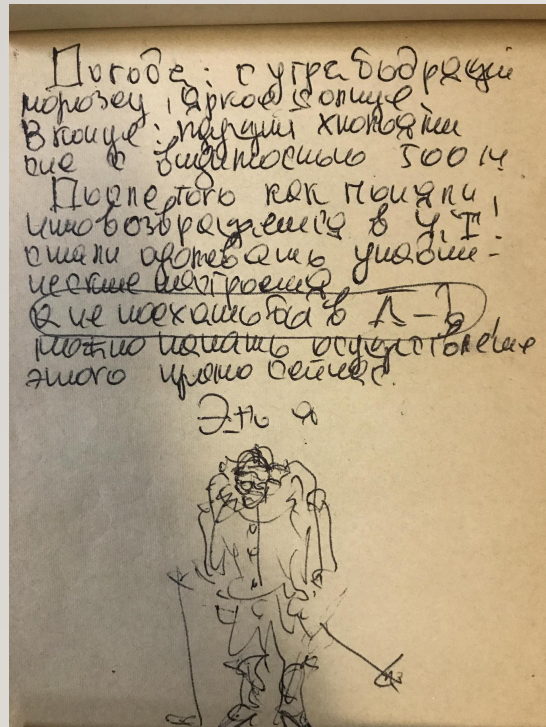 Погода: с утра бодрящий
морозец, яркое солнце
В конце: падущий хлопьями
снег с видимостью 500 м
После того как поняли,
что возвращаемся в У,Т!
стали одолевать упадни-
ческие настроения
а не поехать бы в Л-д,
можно начать осуществление
этого прямо сейчас.
Это я